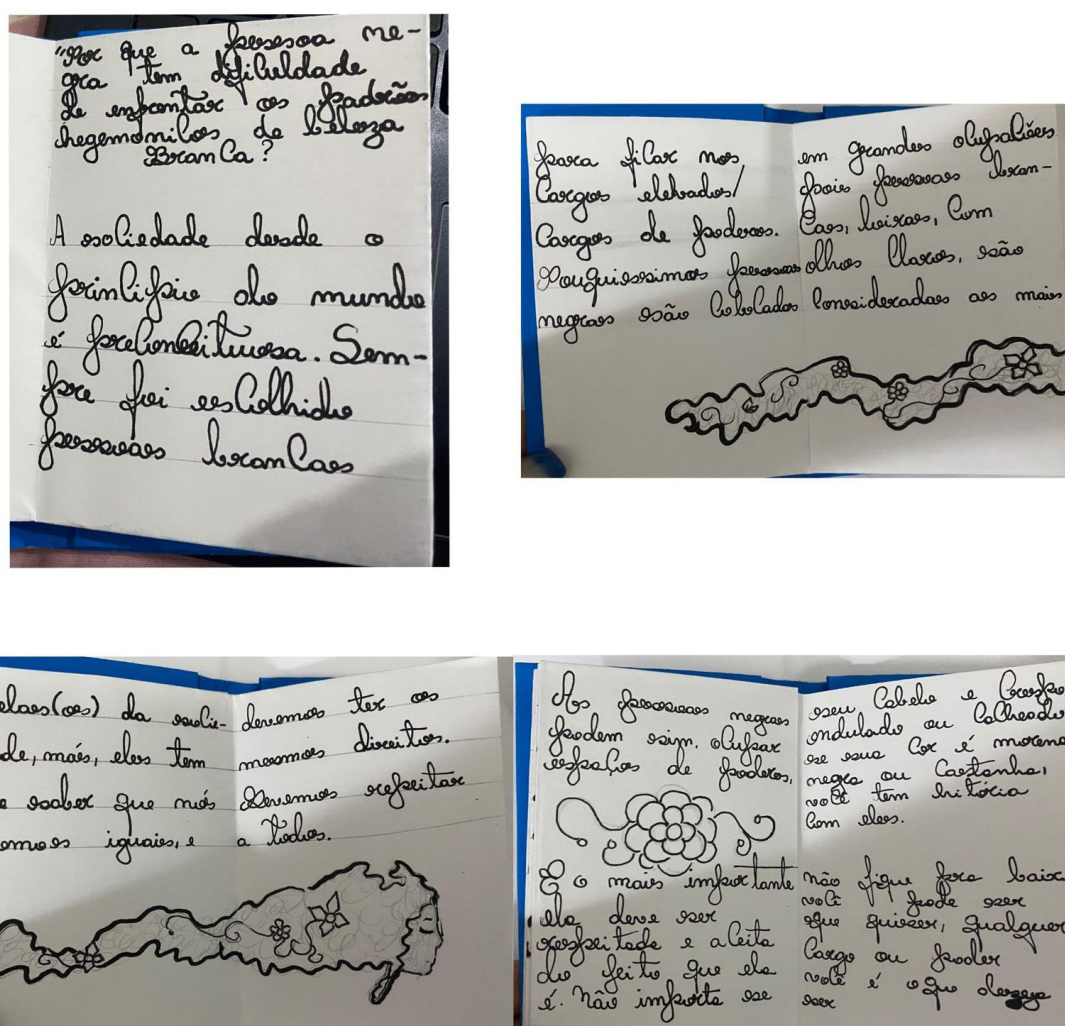 "Por que a pessoa ne-
gra tem dificuldade
de enfrentar os padrões
hegemônicos de beleza
Branca?
A sociedade desde o
principio do mundo
é preconceituosa. Sem-
pre foi escolhido
pessoas brancas
para ficar nos
Cargos elevados/
Cargos de poderes.
Pouquissimas pessoas
negras são Colocadas
em grandes ocupações
pois pessoas bran-
Cas, loiras, Com
olhos Claros, são
Consideradas as mais
elas(os) da socie-
de, mais, eles tem
e saber que nós
omos iguais, e
devemos ter os
mesmos direitos.
Devemos respeitar
a todos.
As pessoas negras
podem sim, ocupar
espaços de poderes,
E o mais importante
ela deve ser
respeitada e aceita
do jeito que ela
é. Não importa se
seu Cabelo e Crespo
ondulado ou Calheado
se sua Cor é morena
negra ou Castanha,
você tem hitória
Com eles.
não fique pra baixo
você pode ser
que quiser, qualquer
Cargo ou poder
você é o que deseja
ser